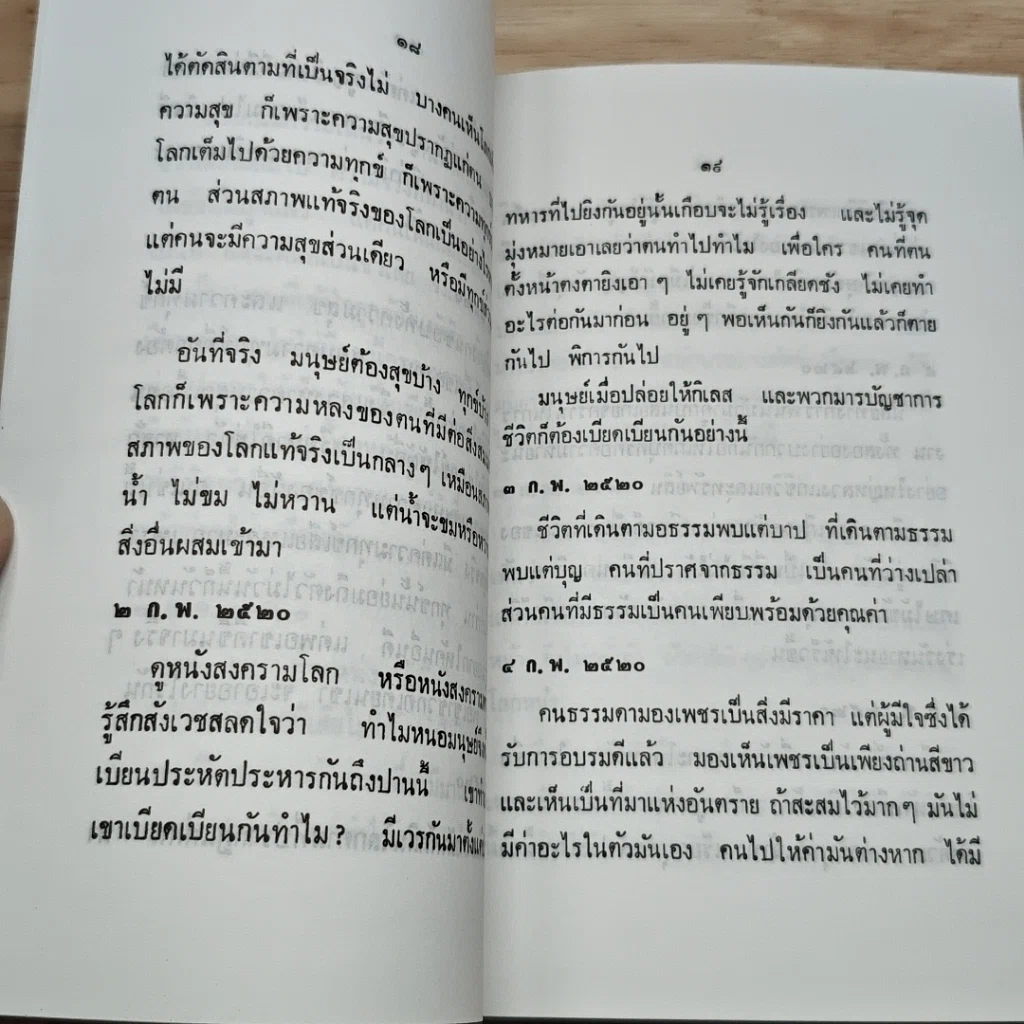 ๑๘
ได้ตัดสินตามที่เป็นจริงไม่ บางคนเห็น
ความสุข ก็เพราะความสุขปรากฏแก่ตน
โลกเต็มไปด้วยความทุกข์ ก็เพราะความ
ตน ส่วนสภาพแท้จริงของโลกเป็นอย่าง
แต่คนจะมีความสุขส่วนเดียว หรือมีทุกข์
ไม่มี
อันที่จริง มนุษย์ต้องสุขบ้าง ทุกข์
โลกก็เพราะความหลงของตนที่มีต่อ
สภาพของโลกแท้จริงเป็นกลางๆ เหมือน
น้ำ ไม่ขม ไม่หวาน แต่น้ำจะขมหรือ
สิ่งอื่นผสมเข้ามา
๒ ก.พ. ๒๕๒๐
ดูหนังสงครามโลก หรือหนังสงคราม
รู้สึกสังเวชสลดใจว่า ทำไมหนอมนุษย์
เบียนประหัตประหารกันถึงปานนี้ เขา
เขาเบียดเบียนกันทำไม? มีเวรกันมา
๑๙
ทหารที่ไปยิงกันอยู่นั้นเกือบจะไม่รู้เรื่อง และไม่รู้จุด
มุ่งหมายเอาเลยว่าตนทำไปทำไม เพื่อใคร คนที่ตน
ตั้งหน้าตงตายิงเอาๆ ไม่เคยรู้จักเกลียดชัง ไม่เคยทำ
อะไรต่อกันมาก่อน อยู่ๆ พอเห็นกันก็ยิงกันแล้วก็ตาย
กันไป พิการกันไป
มนุษย์เมื่อปล่อยให้กิเลส และพวกมารบัญชาการ
ชีวิตก็ต้องเบียดเบียนกันอย่างนี้
๓ ก.พ. ๒๕๒๐
ชีวิตที่เดินตามอธรรมพบแต่บาป ที่เดินตามธรรม
พบแต่บุญ คนที่ปราศจากธรรม เป็นคนที่ว่างเปล่า
ส่วนคนที่มีธรรมเป็นคนเพียบพร้อมด้วยคุณค่า
๔ ก.พ. ๒๕๒๐
คนธรรมดามองเพชรเป็นสิ่งมีราคา แต่ผู้มีใจซึ่งได้
รับการอบรมดีแล้ว มองเห็นเพชรเป็นเพียงถ่านสีขาว
และเห็นเป็นที่มาแห่งอันตราย ถ้าสะสมไว้มากๆ มันไม่
มีค่าอะไรในตัวมันเอง คนไปให้ค่ามันต่างหาก ได้มี